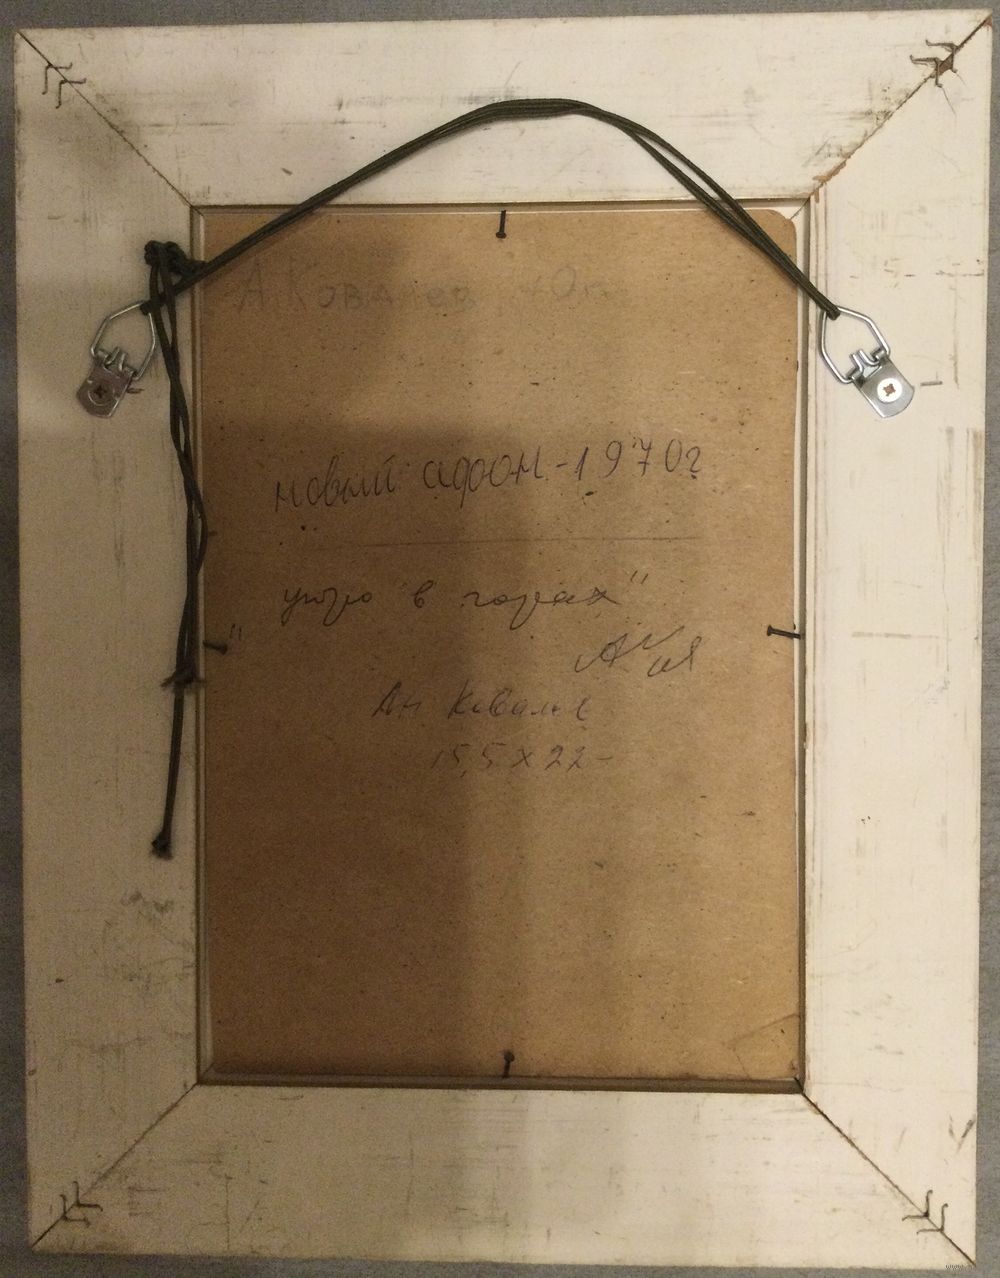 А Ковалев
новый афон-1970г
"утро в горах"
Ан Ковале
15,5 х 22-